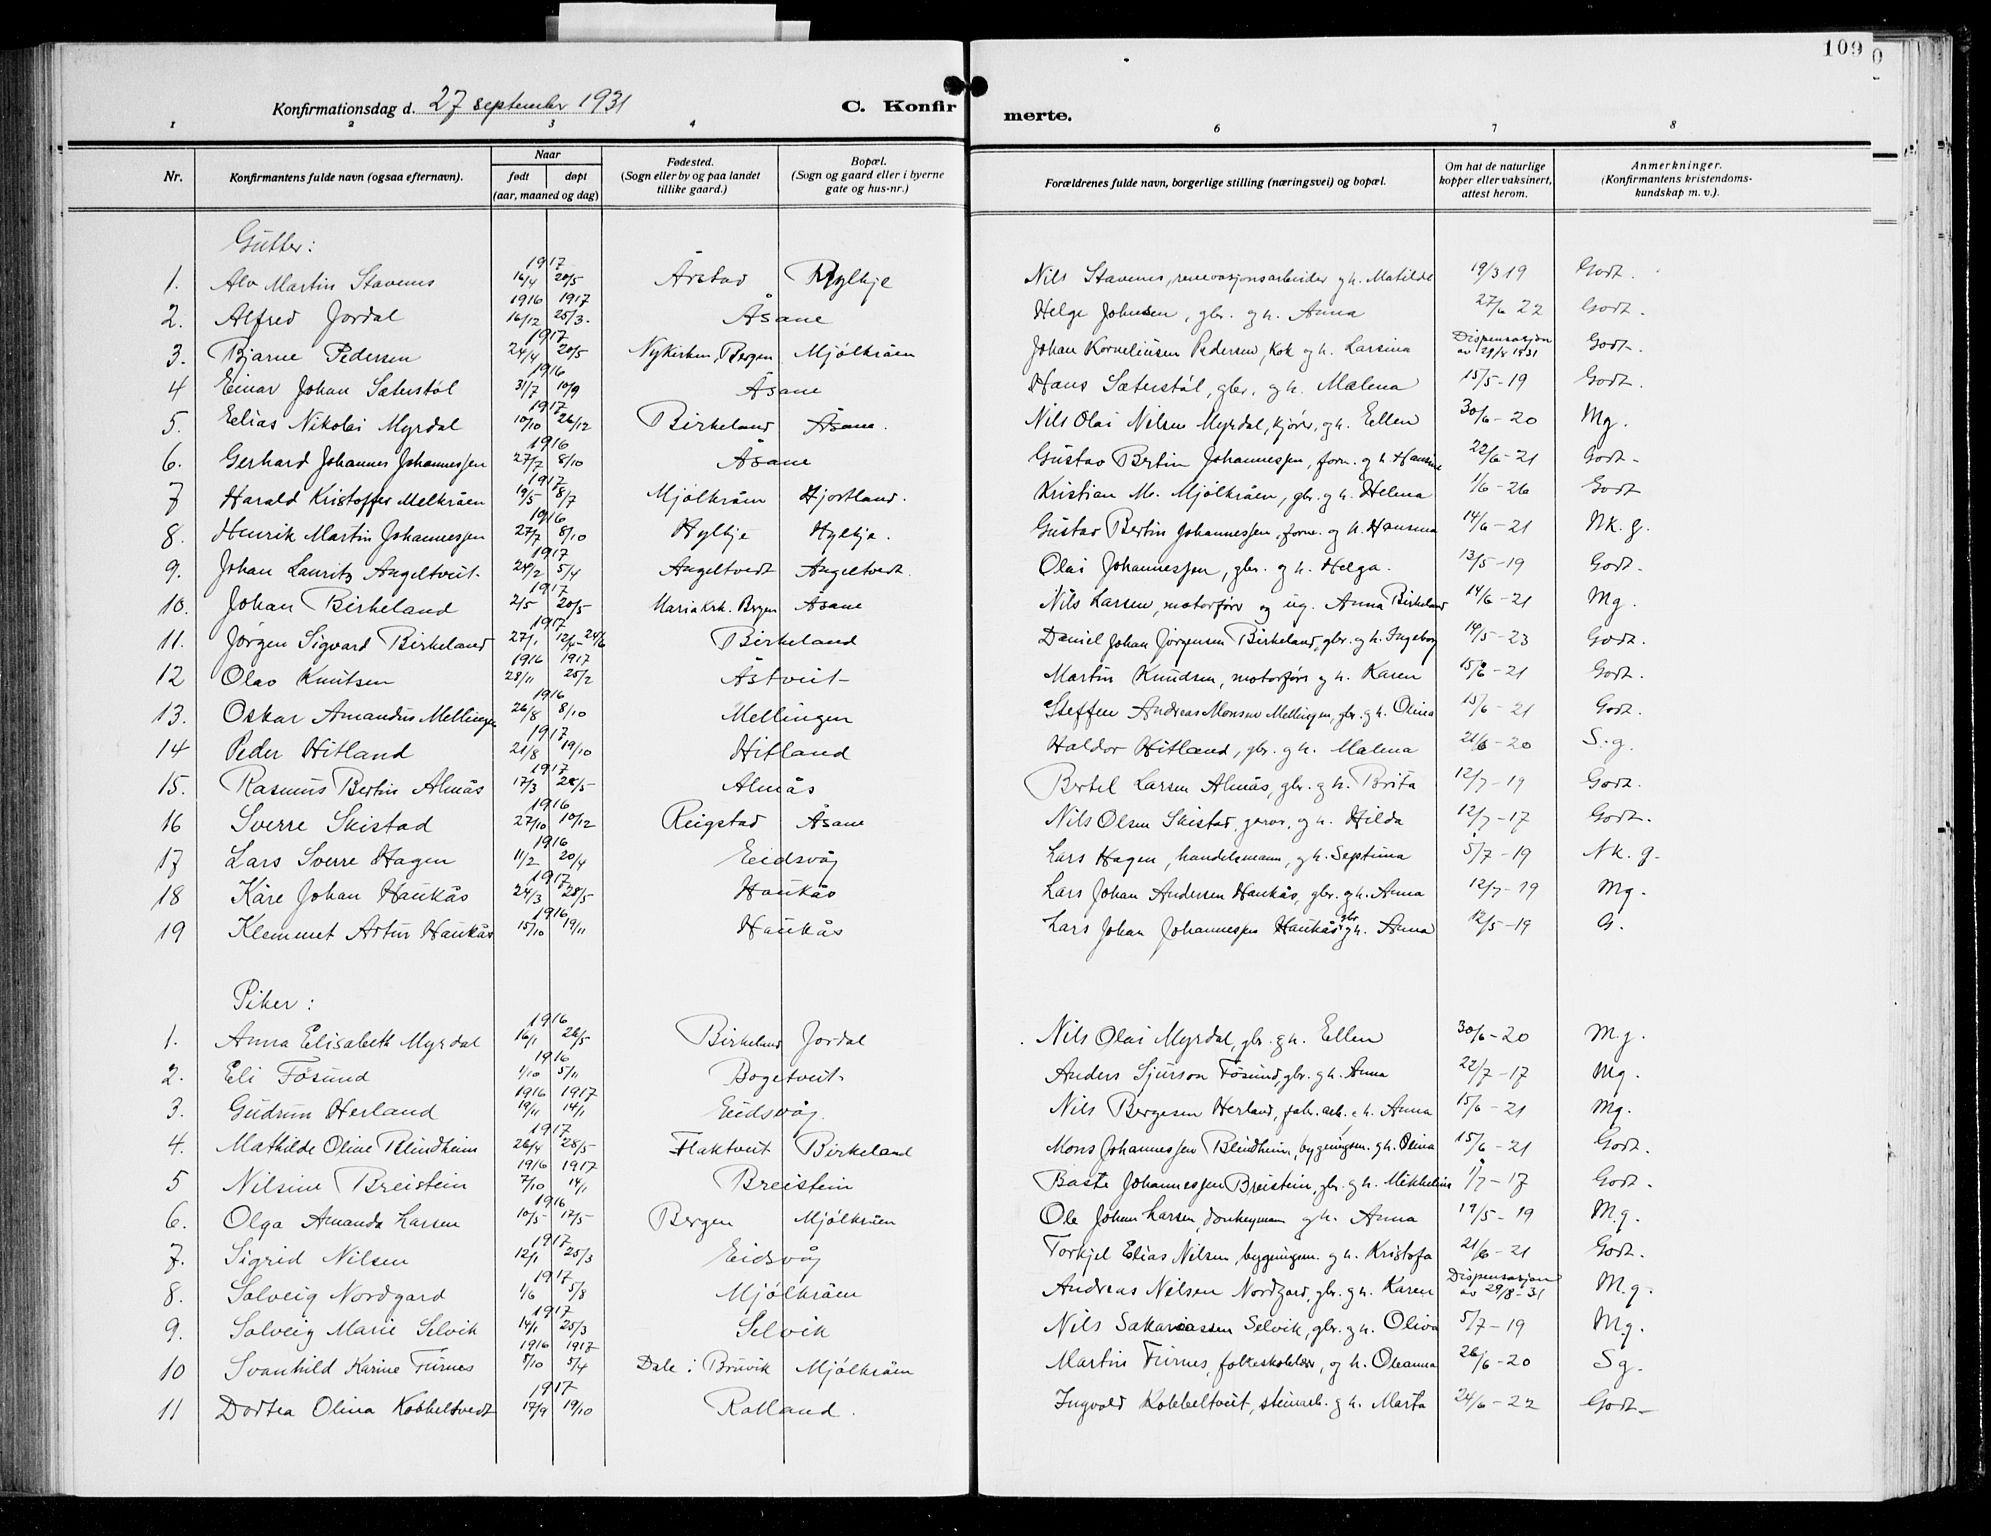 109
Konfirmationsdag d. 27 september 1931
C. Konfirmerte.
1 2 3 4 6 7 8
Nr.
Konfirmantens fulde navn (ogsaa efternavn).
Naar
født døpt
(aar, maaned og dag)
Fødested.
(Sogn eller by og paa landet
tillike gaard.)
Bopæl.
(Sogn og gaard eller i byerne
gate og hus-nr.)
Forældrenes fulde navn, borgerlige stilling (næringsvei) og bopæl.
Om hat de naturlige
kopper eller vaksinert,
attest herom.
Anmerkninger.
(Konfirmantens kristendoms-
kundskap m. v.).
Gutter:
1917
1. Alv Martin Stavenes 16/4 20/5 Årstad Hylkje Nils Stavenes, renovasjonsarbeider g h. Matilde 19/3 19 Godt.
1916 1917
2. Alfred Jordal 16/12 25/3. Åsane Helge Johnsen, gbr. g h. Anna 27/6 22 Godt.
1917
3. Bjarne Pedersen 24/4 20/5 Nykirken, Bergen Mjölkråen Johan Korneliusen Pedersen, kok g h. Larsina Dispensasjon av 29/8 1931 Godt.
1916
4 Einar Johan Sæterstöl 31/7 10/9 Åsane Hans Sæterstöl, gbr. g h. Malena 15/5-19 Godt.
1917
5. Elias Nikolai Myrdal 10/10 26/12 Birkeland Åsane. Nils Olai Nilsen Myrdal, kjörer, g h. Ellen 30/6-20 Mg.
1916
6. Gerhard Johannes Johannessen 27/7 8/10 Åsane Gustav Bertin Johannessen, form. g h Hansine 22/6-21 Godt-
1917
7 Harald Kristoffer Melkråen 19/5 8/7 Mjölkråen Hjortland. Kristian M. Mjölkråen, gbr. g h. Helena 1/6-26 Godt
1916
8. Henrik Martin Johannessen 27/7 8/10 Hylkje Hylkje. Gustav Bertin Johannessen, form. g h. Hansina 14/6-21 Nk. g.
1917
9. Johan Lauritz Angeltveit. 24/2 5/4 Angeltvedt Angeltvedt. Olai Johannessen, gbr. g h. Helga. 13/5-19 Godt.
1917
10. Johan Birkeland 2/5 20/5 Maria krk. Bergen Åsane Nils Larsen, motorförer og ug. Anna Birkeland 14/6-21 Mg.
1917
11. Jørgen Sigvard Birkeland 27/1 12/4-24/6 Birkeland Daniel Johan Jørgensen Birkeland, gbr. g h. Ingeborg 14/5-23 Godt.
1916 1917
12 Olav Knutsen 28/11 25/2 Åstveit Martin Knudsen, motorförer g h. Karen 15/6-21 Godt.
1916
13. Oskar Amandus Mellingen 26/8 8/10 Mellingen Steffen Andreas Monsen Mellingen, gbr. g h. Olina 15/6-21 Godt.
1917
14 Peder Hitland 21/8 19/10 Hitland Haldor Hitland, gbr. g h. Malena 21/6-20 S.g.
1917
15. Rasmus Bertin Almås 17/3 28/5 Almås Bertel Larsen Almås, gbr. g h. Brita 12/7-19 Godt.
1916
16 Sverre Skistad 27/10 10/12 Reigstad Åsane Nils Olsen Skistad, garver, g h. Hilda 12/7-17 Godt.
1916
17 Lars Sverre Hagen 11/2 20/4 Eidsvåg Lars Hagen, handelsmann, g h. Septima 5/7-19 Nk. g.
1917
18 Kåre Johan Haukås 24/3 28/5 Haukås Lars Johan Andersen Haukås, gbr. g h. Anna 12/7-19 Mg.
1916
19 Klemmet Artur Haukås 15/10 19/11 Haukås Lars Johan Johannessen Haukås gbr. g h. Anna 12/5-19 G.
Piker:
1916
1. Anna Elisabeth Myrdal 16/1 26/5 Birkeland Jordal Nils Olai Myrdal, gbr. g h. Ellen 30/6-20 M.g.
1916
2. Eli Fösund 1/10 5/11 Bogetveit Anders Sjurson Fösund, gbr. g h. Anna 22/7-17 Mg.
1916 1917
3. Gudrun Herland 19/11 14/1 Eidsvåg. Nils Bergesen Herland, fabr. arb. g h. Anna 15/6-21 Mg.
1917
4. Mathilde Oline Blindheim 26/4 28/5 Flaktveit Birkeland Mons Johannessen Blindheim, bygningsm. g h. Olina 15/6-21 Godt.
1916 1917
5 Nilsine Breistein 7/10 14/1 Breistein Baste Johannessen Breistein, gbr. g h. Mikkeline 1/7-17 Godt.
1916
6. Olga Amanda Larsen 10/5 17/5 Bergen Mjölkråen Ole Johan Larsen, donkeymann g h. Anna 19/5-19 M.g.
1917
7. Sigrid Nilsen 12/1 25/3 Eidsvåg Torkjel Elias Nilsen bygningsm. g h. Kristofa 21/6-21 Godt.
1917
8. Solveig Nordgard 1/6 5/8 Mjölkråen Andreas Nilsen Nordgard, gbr. g h. Karen Dispensasjon av 29/8-31 M.g.
1917
9. Solveig Marie Selvik 14/1 25/3 Selvik Nils Sakariassen Selvik, gbr. g h. Oliva 5/7-19 Mg.
1916 1917
10 Svanhild Karine Furnes 5/10 5/4 Dale i Bruvik Mjölkråen Martin Furnes, folkeskolelærer, g h. Oleanna 26/6-20 Sg.
1917
11 Dortea Olina Kobbeltvedt 17/9 19/10 Rolland. Ingvald Kobbeltveit, steinarb. g h. Marta 24/6-22 Godt